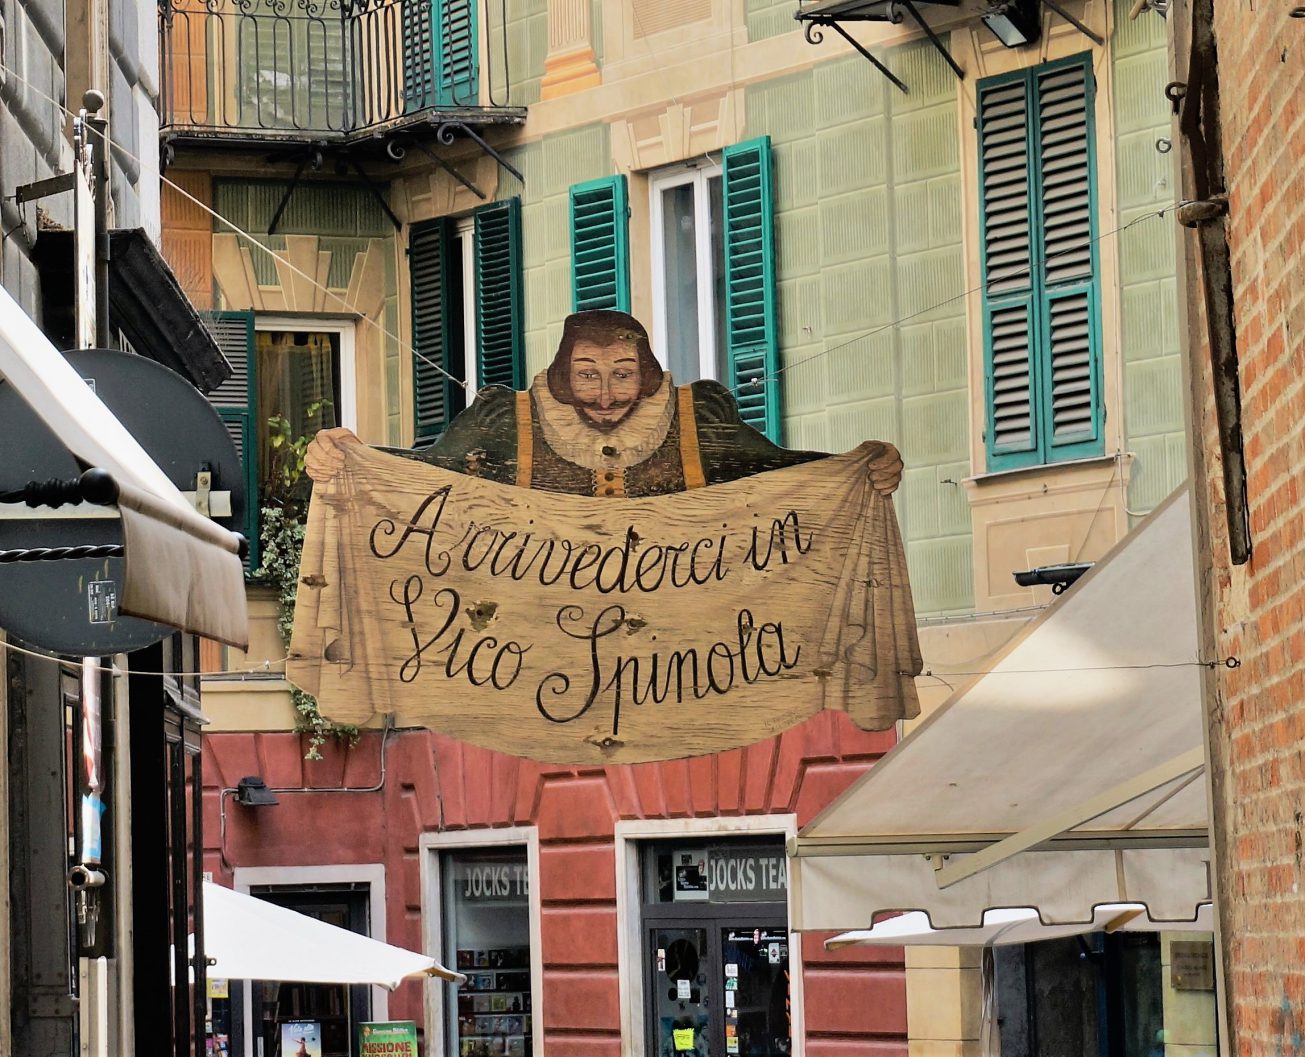 Arrivederci in
Vico Spinola
JOCKS TE
JOCKS TEA
MISSIONE